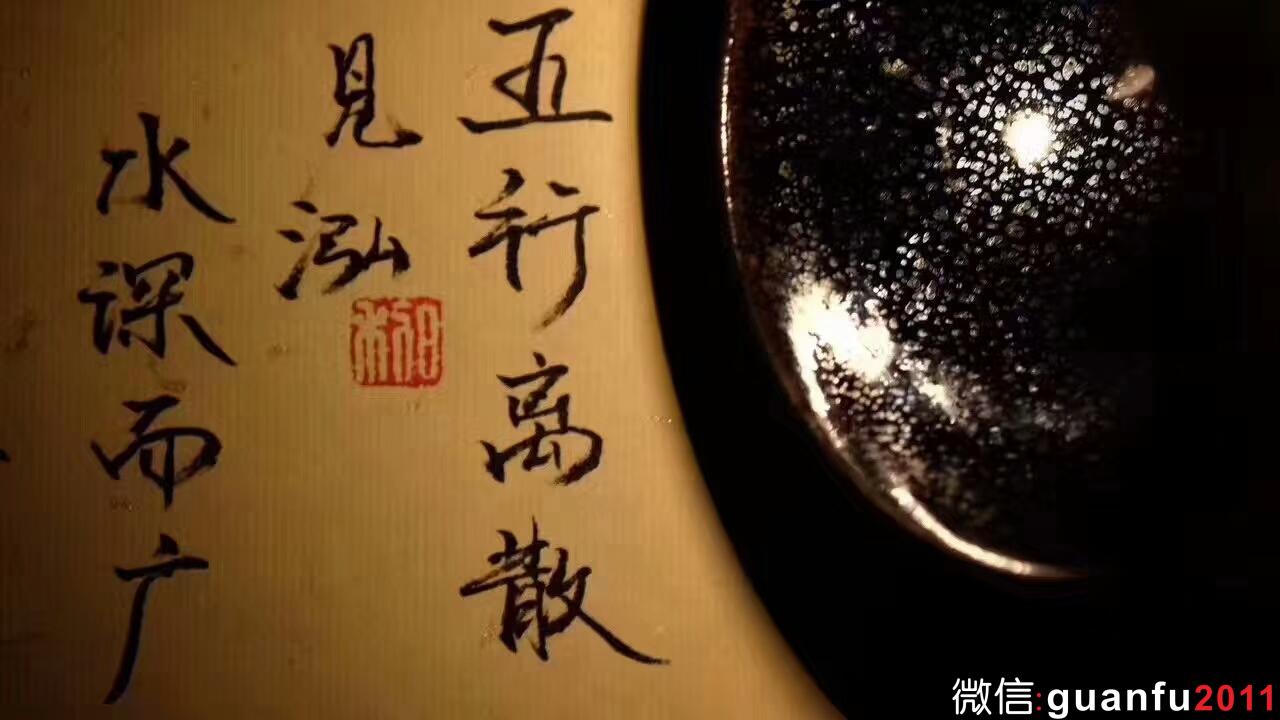 五行离散
见泓
水深而广
微信:guanfu2011